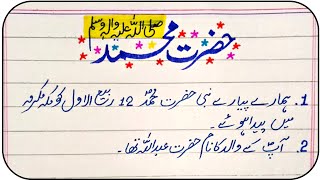 صلی اللہ علیہ والہ وسلم
حضرت محمد
1. ہمارے پیارے نبی حضرت محمدؐ 12 ربیع الاول کو مکہ مکرمہ
میں پیدا ہوئے۔
2. آپؐ کے والد کا نام حضرت عبداللہ تھا۔